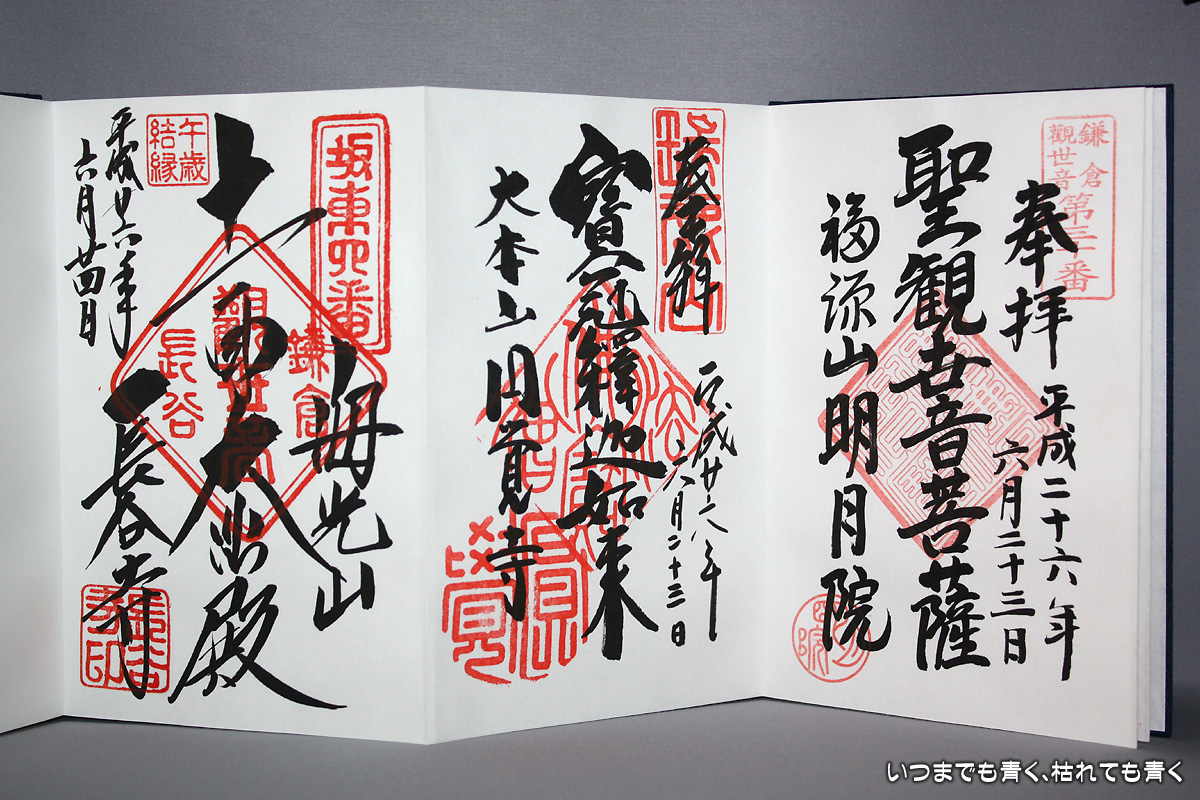 鎌倉
觀世音
第三十番
奉拝
平成二十六年
六月二十三日
聖観世音菩薩
福源山明月院
奉拝
平成廿六年
六月二十三日
寳冠釋迦如来
大本山円覚寺
坂東四番
海光山
鎌倉
長谷
十一面大悲殿
午歳
結縁
長谷寺
平成廿六年
六月廿四日
いつまでも青く、枯れても青く